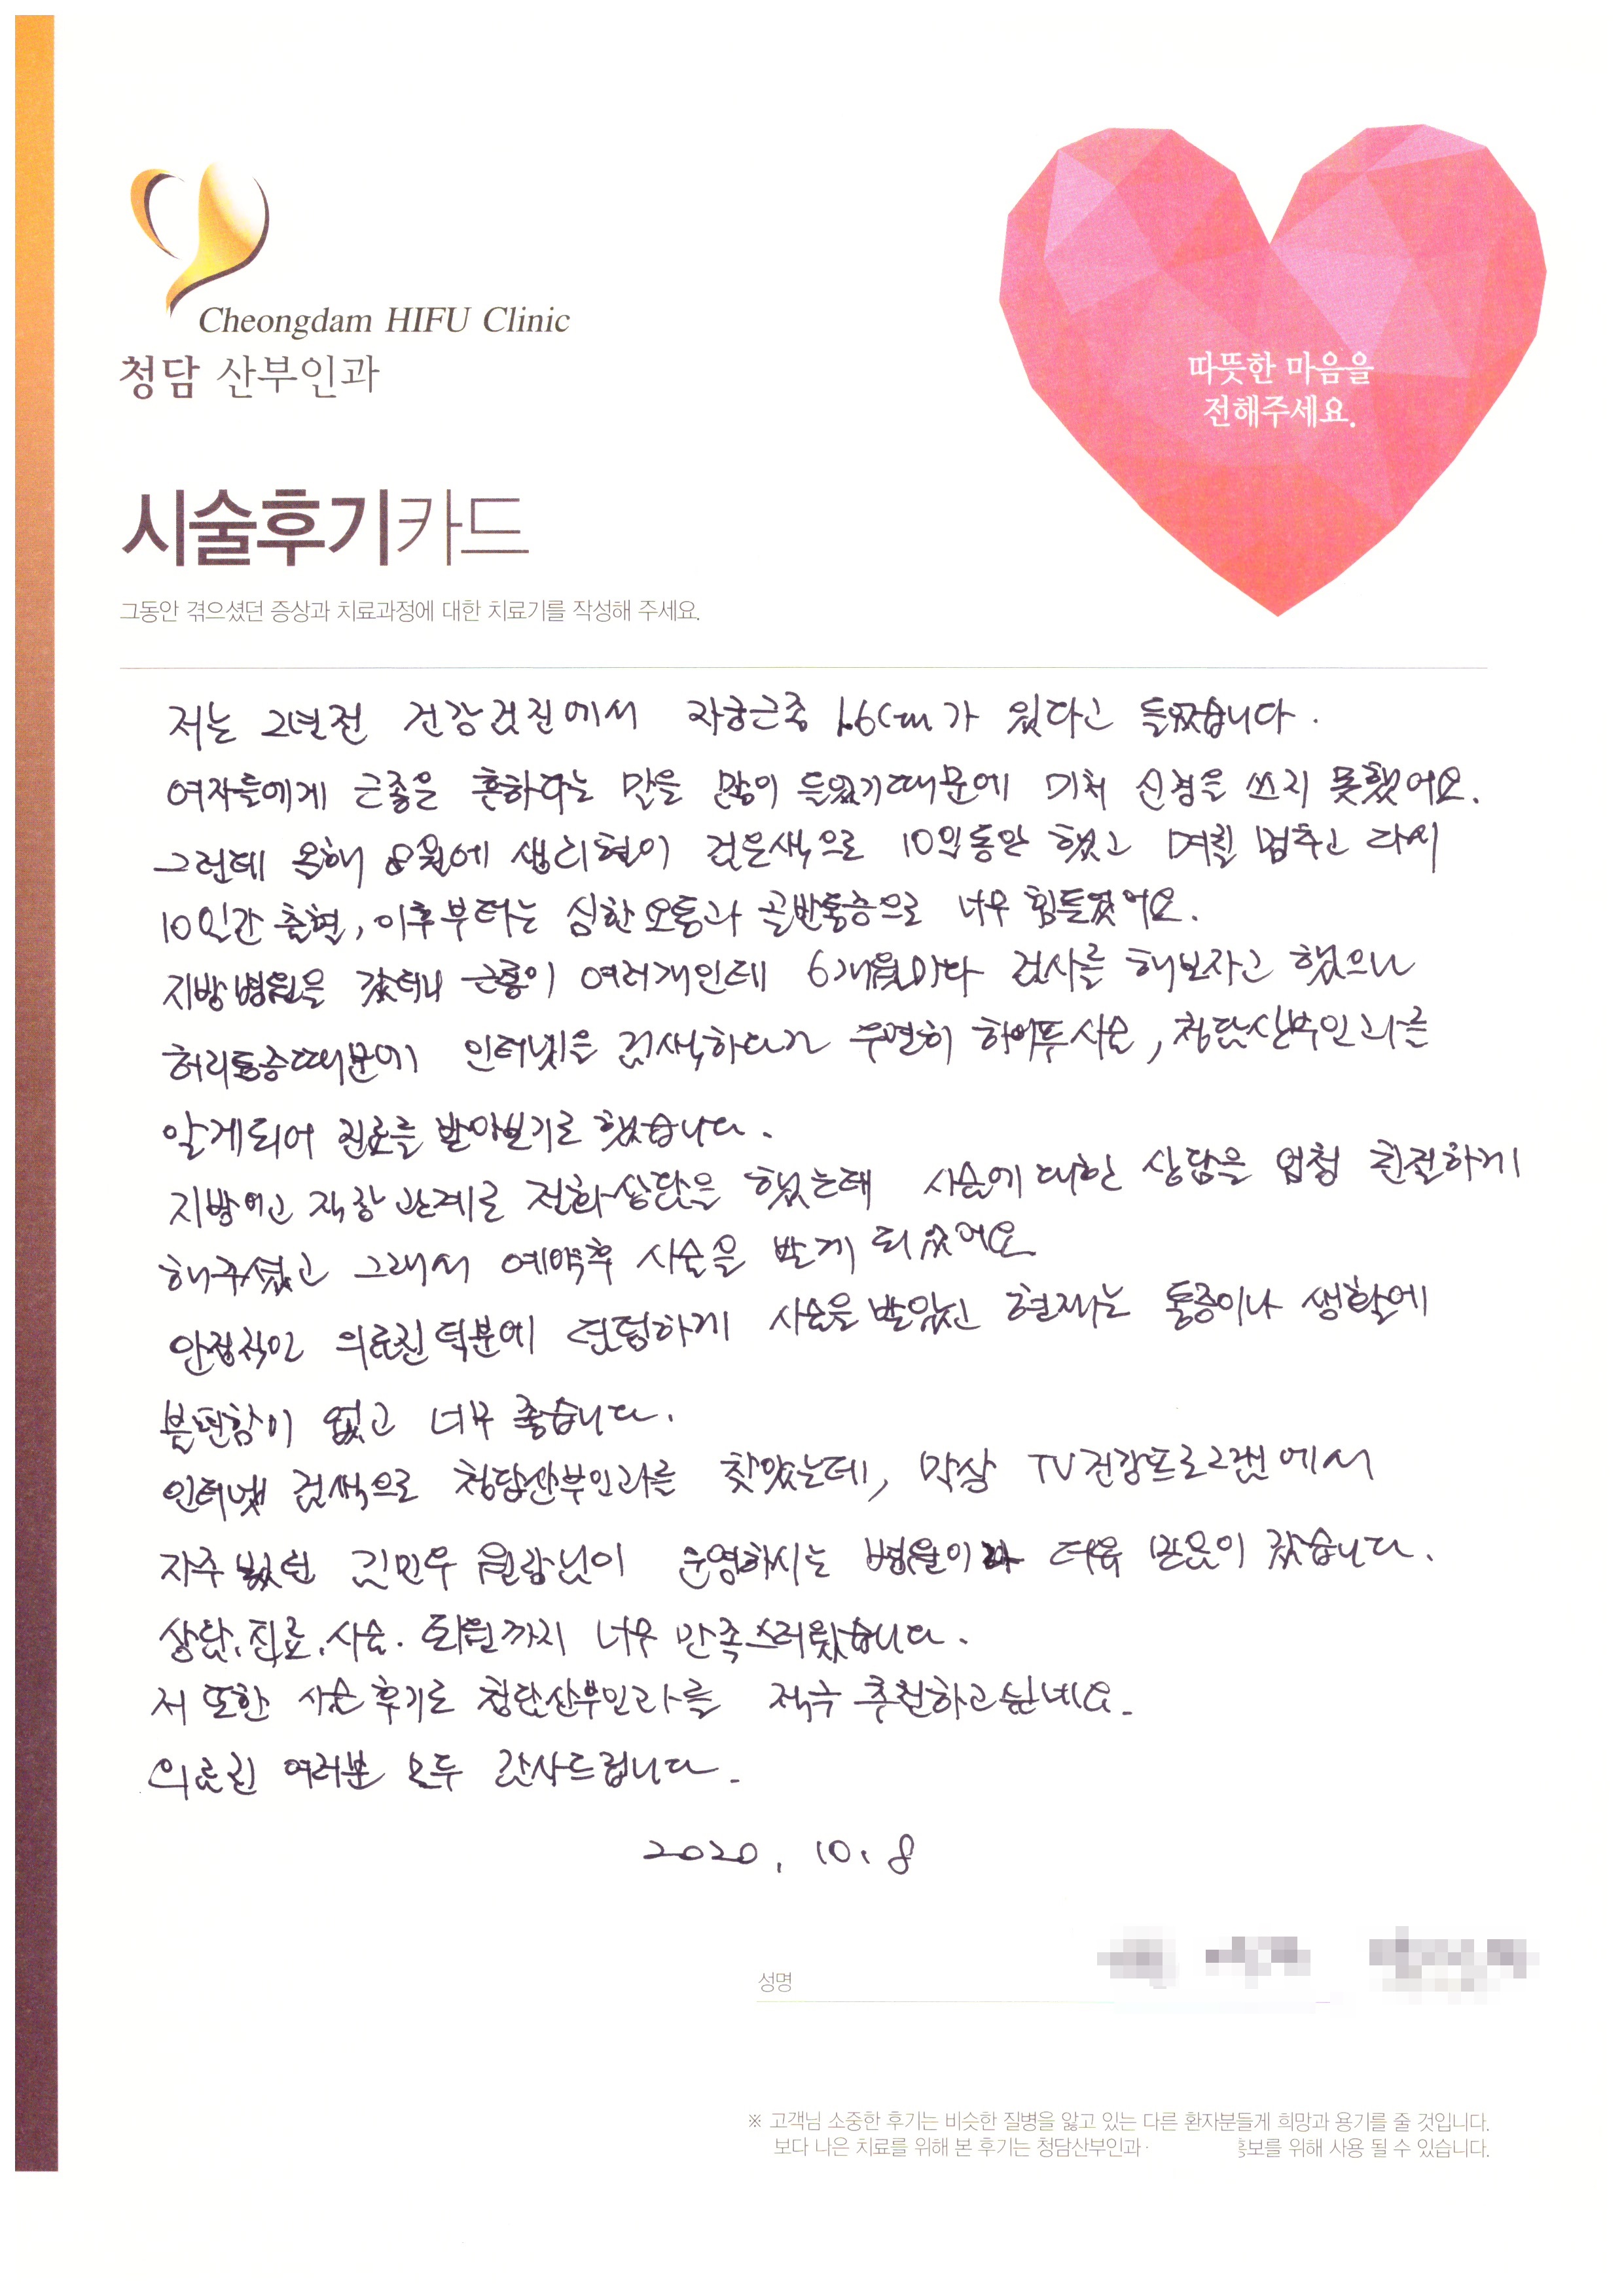 Cheongdam HIFU Clinic
청담 산부인과
따뜻한 마음을
전해주세요.
시술후기카드
그동안 겪으셨던 증상과 치료과정에 대한 치료기를 작성해 주세요.
저는 2년전 건강검진에서 자궁근종 1.6cm가 있다고 들었습니다.
여자들에게 근종은 흔하다는 말을 많이 들었기때문에 미처 신경을 쓰지 못했어요.
그런데 올해 8월에 생리혈이 검은색으로 10일동안 했고 며칠 멈추고 다시
10일간 출혈, 이후부터는 심한 요통과 골반통증으로 너무 힘들었어요.
지방병원을 갔더니 근종이 여러개인데 6개월마다 검사를 해보자고 했으나
허리통증때문에 인터넷을 검색하다가 우연히 하이푸시술, 청담산부인과를
알게되어 진료를 받아보기로 했습니다.
지방이고 직장관계로 전화상담을 했는데 시술에 대한 상담을 엄청 친절하게
해주셨고 그래서 예약후 시술을 받게 되었어요
안정적인 의료진덕분에 편하게 시술을 받았고 현재는 통증이나 생활에
불편함이 없고 너무 좋습니다.
인터넷 검색으로 청담산부인과를 찾았는데, 막상 TV건강프로그램에서
자주 봤던 김민우 원장님이 운영하시는 병원이라 더욱 믿음이 갔습니다.
상담.진료.시술. 퇴원까지 너무 만족스러웠습니다.
저 또한 시술후기로 청담산부인과를 적극 추천하고싶네요.
의료진 여러분 모두 감사드립니다.
2020. 10. 8
성명
※ 고객님 소중한 후기는 비슷한 질병을 앓고 있는 다른 환자분들게 희망과 용기를 줄 것입니다.
보다 나은 치료를 위해 본 후기는 청담산부인과· 홍보를 위해 사용 될 수 있습니다.